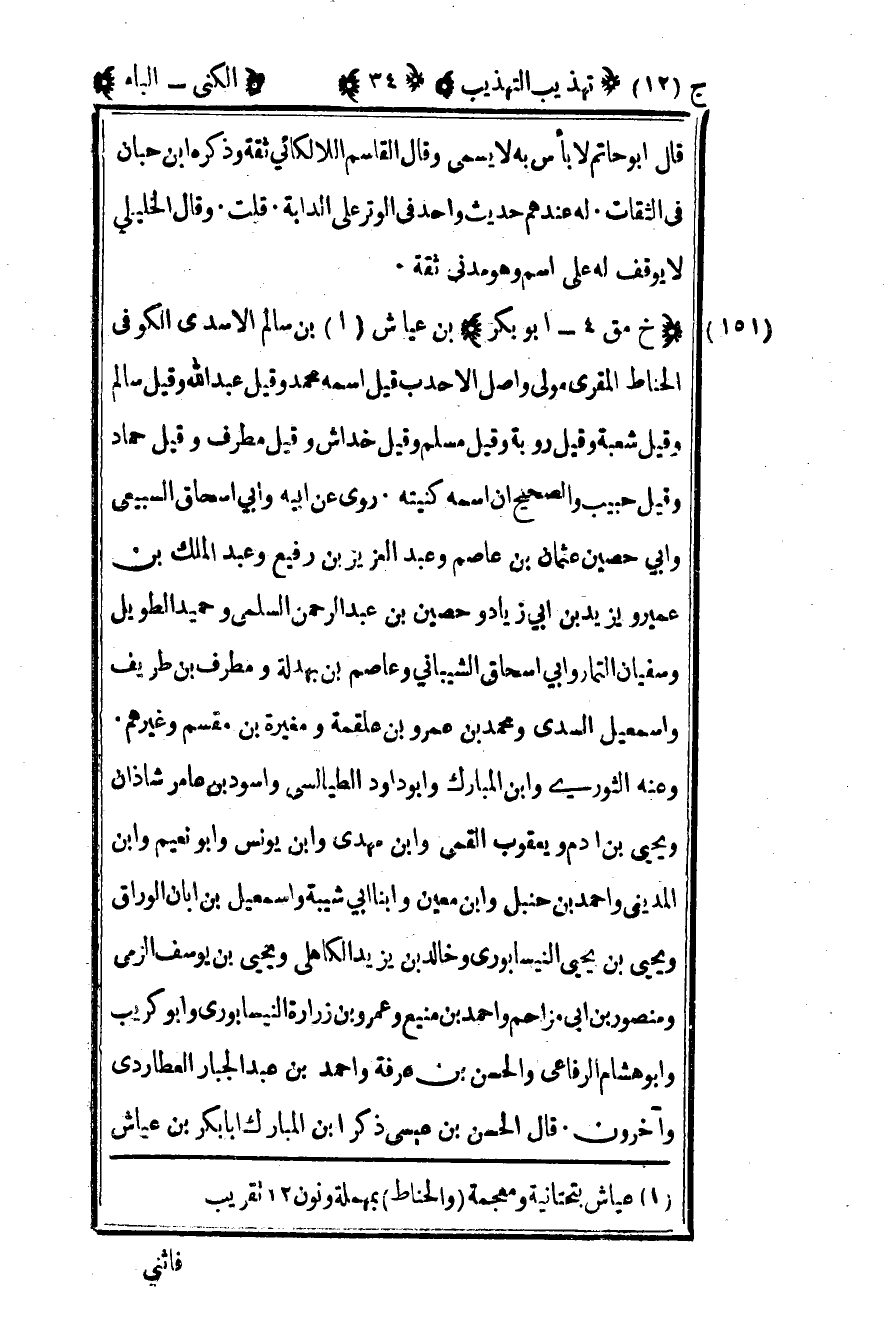 ج (١٢) ﴿ تهذيب التهذيب ﴾ ﴿ ٣٤ ﴾ ﴿ الكنى ــ الباء ﴾
قال ابوحاتم لا بأس به لا يسمى وقال القاسم اللالكائي ثقة وذكره ابن حبان
فى الثقات · له عندهم حديث واحد فى الوتر على الدابة · قلت · وقال الخليلي
لا يوقف له على اسم وهو مدنى ثقة ·
(١٥١) ﴿ خ مق ٤ ــ ابو بكر ﴾ بن عياش (١) بن سالم الاسدى الكوفى
الحناط المقرى مولى واصل الاحدب قيل اسمه محمد وقيل عبد الله وقيل سالم
وقيل شعبة وقيل روبة وقيل مسلم وقيل خداش وقيل مطرف وقيل حماد
وقيل حبيب والصحيح ان اسمه كنيته · روى عن ابيه وابي اسحاق السبيعى
وابي حصين عثمان بن عاصم وعبد العزيز بن رفيع وعبد الملك بن
عمير ويزيد بن ابي زياد وحصين بن عبد الرحمن السلمى وحميد الطويل
وسفيان التمار وابي اسحاق الشيباني وعاصم بن بهدلة ومطرف بن طريف
واسمعيل السدى ومحمد بن عمرو بن علقمة ومغيرة بن مقسم وغيرهم ·
وعنه الثورى وابن المبارك وابوداود الطيالسى واسود بن عامر شاذان
ويحيى بن ادم ويعقوب القمى وابن مهدى وابن يونس وابو نعيم وابن
المدينى واحمد بن حنبل وابن معين وابنا ابي شيبة واسمعيل بن ابان الوراق
ويحيى بن يحيى النيسابورى وخالد بن يزيد الكاهلى ويحيى بن يوسف الزمى
ومنصور بن ابى مزاحم واحمد بن منيع وعمرو بن زرارة النيسابورى وابو كريب
وابو هشام الرفاعى والحسن بن عرفة واحمد بن عبد الجبار العطاردى
وآخرون · قال الحسن بن عيسى ذكر ابن المبارك ابا بكر بن عياش
(١) عياش بتحتانية ومعجمة (والحناط) بمهملة ونون ١٢ تقريب
فاثنى